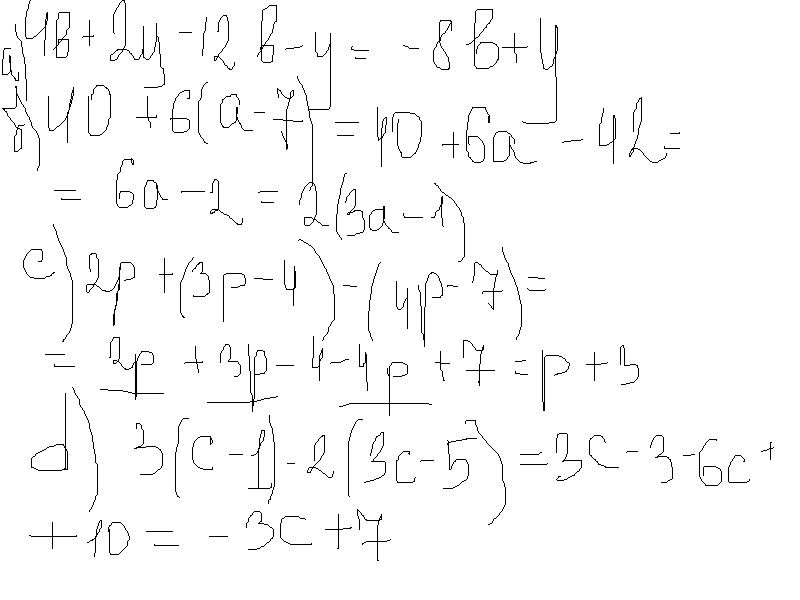 а) 4в + 2y - 12в - y = -8в + y
б) 40 + 6(a - 7) = 40 + 6a - 42 =
= 6a - 2 = 2(3a - 1)
c) 2p + (3p - 4) - (4p - 7) =
= 2p + 3p - 4 - 4p + 7 = p + 3
d) 3(c - 1) - 2(3c - 5) = 3c - 3 - 6c +
+ 10 = -3c + 7